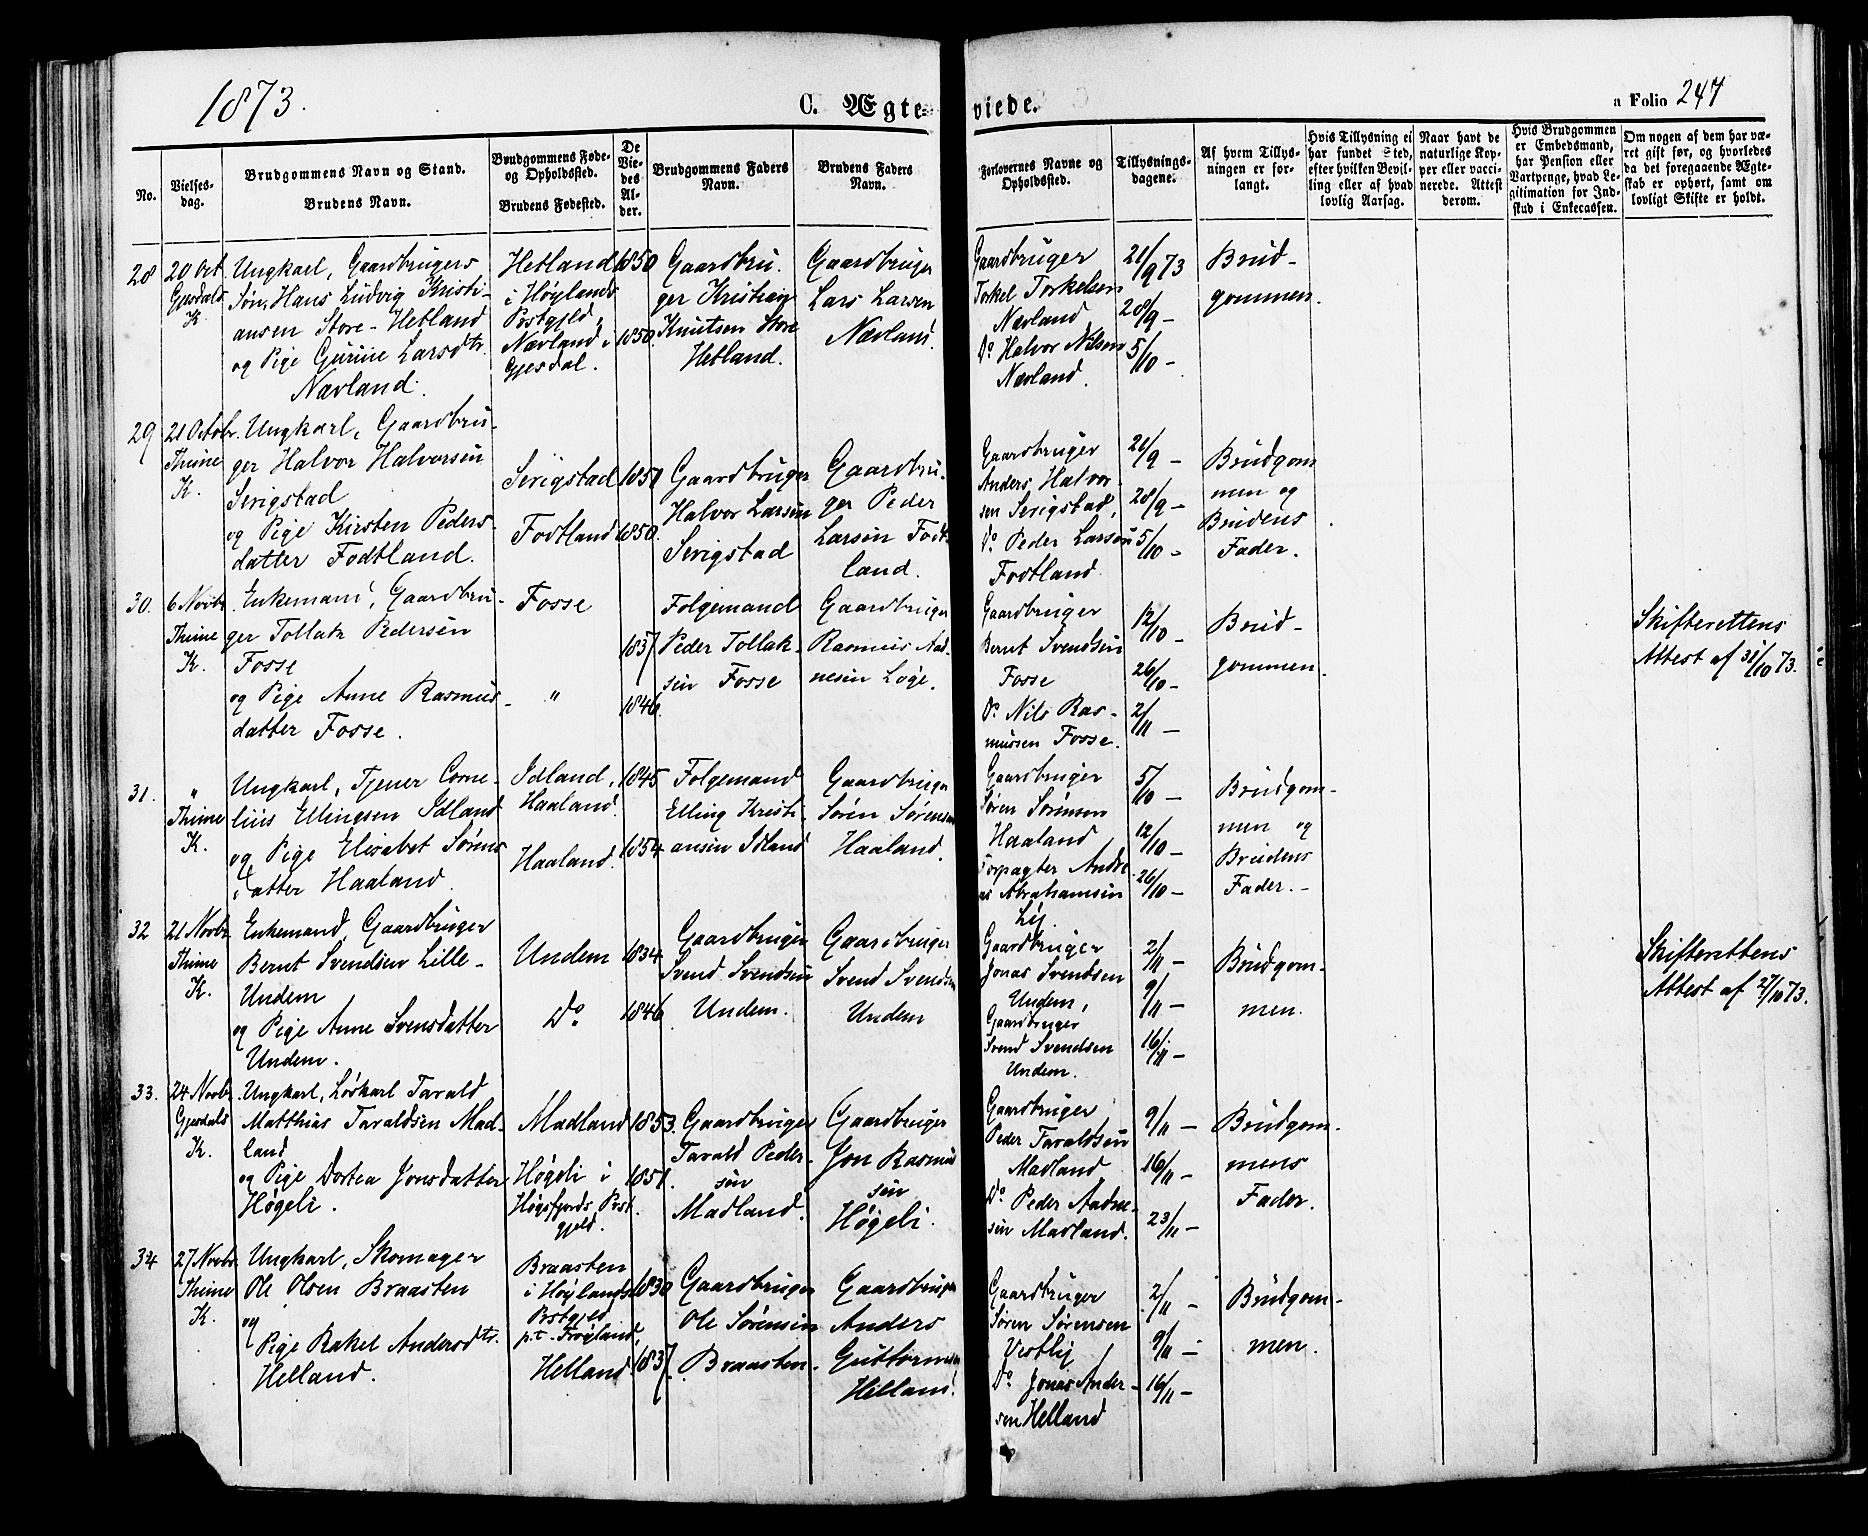 1873.
C. Ægte-
viede.
a Folio 247
No.
Vielses-
dag.
Brudgommens Navn og Stand.
Brudens Navn.
Brudgommens Føde-
og Opholdssted.
Brudens Fødested.
De
Vie-
des
Al-
der.
Brudgommens Faders
Navn.
Brudens Faders
Navn.
Forlovernes Navne og
Opholdssted.
Tillysnings-
dagene.
Af hvem Tillys-
ningen er for-
langt.
Hvis Tillysning ei
har fundet Sted,
efter hvilken Bevil-
ling eller af hvad
lovlig Aarsag.
Naar havt de
naturlige Kop-
per eller vacci-
nerede. Attest
derom.
Hvis Brudgommen
er Embedsmand,
har Pension eller
Vartpenge, hvad Le-
gitimation for Ind-
skud i Enkecassen.
Om nogen af dem har væ-
ret gift før, og hvorledes
da det foregaaende Ægte-
skab er ophørt, samt om
lovligt Skifte er holdt.
28
20 Oct.
Gjesdals
K.
Ungkarl, Gaardbrugers
Søn, Hans Ludvig Kristi-
ansen Store-Hetland
og Pige Gurine Larsdtr.
Nævland.
Hetland
i Høylands
Pstgjeld,
Nævland i
Gjesdal.
1850
1850.
Gaardbru-
ger Kristian
Knutsen Store
Hetland.
Gaardbruger
Lars Larsen
Nævland.
Gaardbruger
Torkel Torkelsen
Nævland
Do Halvor Nilsen
Nævland.
21/9 73
28/9 -
5/10 -
Brud-
gommen.
29
21 Octobr.
Thime
K.
Ungkarl, Gaardbru-
ger Halvor Halvorsen
Serigstad
og Pige Kirsten Peders-
datter Fodtland.
Serigstad
Fodtland
1850
1850.
Gaardbruger
Halvor Larsen
Serigstad
Gaardbru-
ger Peder
Larsen Fodt-
land.
Gaardbruger
Anders Halvor-
sen Serigstad,
Do Peder Larsen
Fodtland.
21/9 -
28/9 -
5/10 -
Brudgom-
men og
Brudens
Fader.
30.
6 Novbr.
Thime
K.
Enkemand, Gaardbru-
ger Tollak Pedersen
Fosse
og Pige Anne Rasmus-
datter Fosse.
Fosse
"
1837
1846.
Folgemand
Peder Tollak-
sen Fosse
Gaardbruger
Rasmus Aad-
nesen Løge.
Gaardbruger
Bernt Svendsen
Fosse
Do Nils Ras-
mussen Fosse.
12/10 -
26/10 -
2/11 -
Brud-
gommen.
Skifterettens
Attest af 31/10 73.
31.
"
Thime
K.
Ungkarl, Tjener Corne-
lius Ellingsen Idland
og Pige Elisabet Sørens-
datter Haaland.
Idland,
Haaland.
Haaland.
1845
1854
Folgemand
Elling Kristi-
ansen Idland
Gaardbruger
Søren Sørensen
Haaland.
Gaardbruger
Søren Sørensen
Haaland
Forpagter Andre-
as Abrahamsen
5/10 -
12/10 -
26/10 -
Brudgom-
men og
Brudens
Fader. -
32
21 Novbr.
Thime
K.
Enkemand, Gaardbruger
Bernt Svendsen Lille-
Undem
og Pige Anne Svensdatter
Undem.
Undem
Do
1834
1846
Gaardbruger
Svend Svendsen
Undem.
Gaardbruger
Svend Svendsen
Undem
Gaardbruger
Jonas Svendsen
Undem,
Gaardbruger
Svend Svendsen
Undem.
2/11 -
9/11 -
16/11 -
Brudgom-
men.
Skifterettens
Attest af 27/10 73.
33.
24 Novbr.
Gjesdals
K.
Ungkarl, Löskarl Tarald
Matthias Taraldsen Mad-
land
og Pige Dortea Jonsdatter
Høgeli.
Madland
Høgeli i
Høgsfjords Pst-
gjeld.
1853.
1851.
Gaardbruger
Tarald Peder-
sen
Madland.
Gaardbruger
Jon Rasmus-
sen
Høgeli.
Gaardbruger
Peder Taraldsen
Madland
Do Peder Aadne-
sen Madland.
9/11 -
16/11 -
23/11 -
Brudgom-
mens
Fader.
34
27 Novbr.
Thime
K.
Ungkarl, Skomager
Ole Olsen Braasten
og
Pige Rakel Andersdtr.
Helland.
Braasten
i Høylands
Pstgjeld,
p.t. Frøyland,
Helland.
1830
1837.
Gaardbruger
Ole Sørensen
Braasten.
Gaardbruger
Anders
Guttormsen
Helland.
Gaardbruger
Søren Sørensen
Vestly
Do Jonas Ander-
sen Helland
2/11 -
9/11 -
16/11 -
Brudgom-
men.